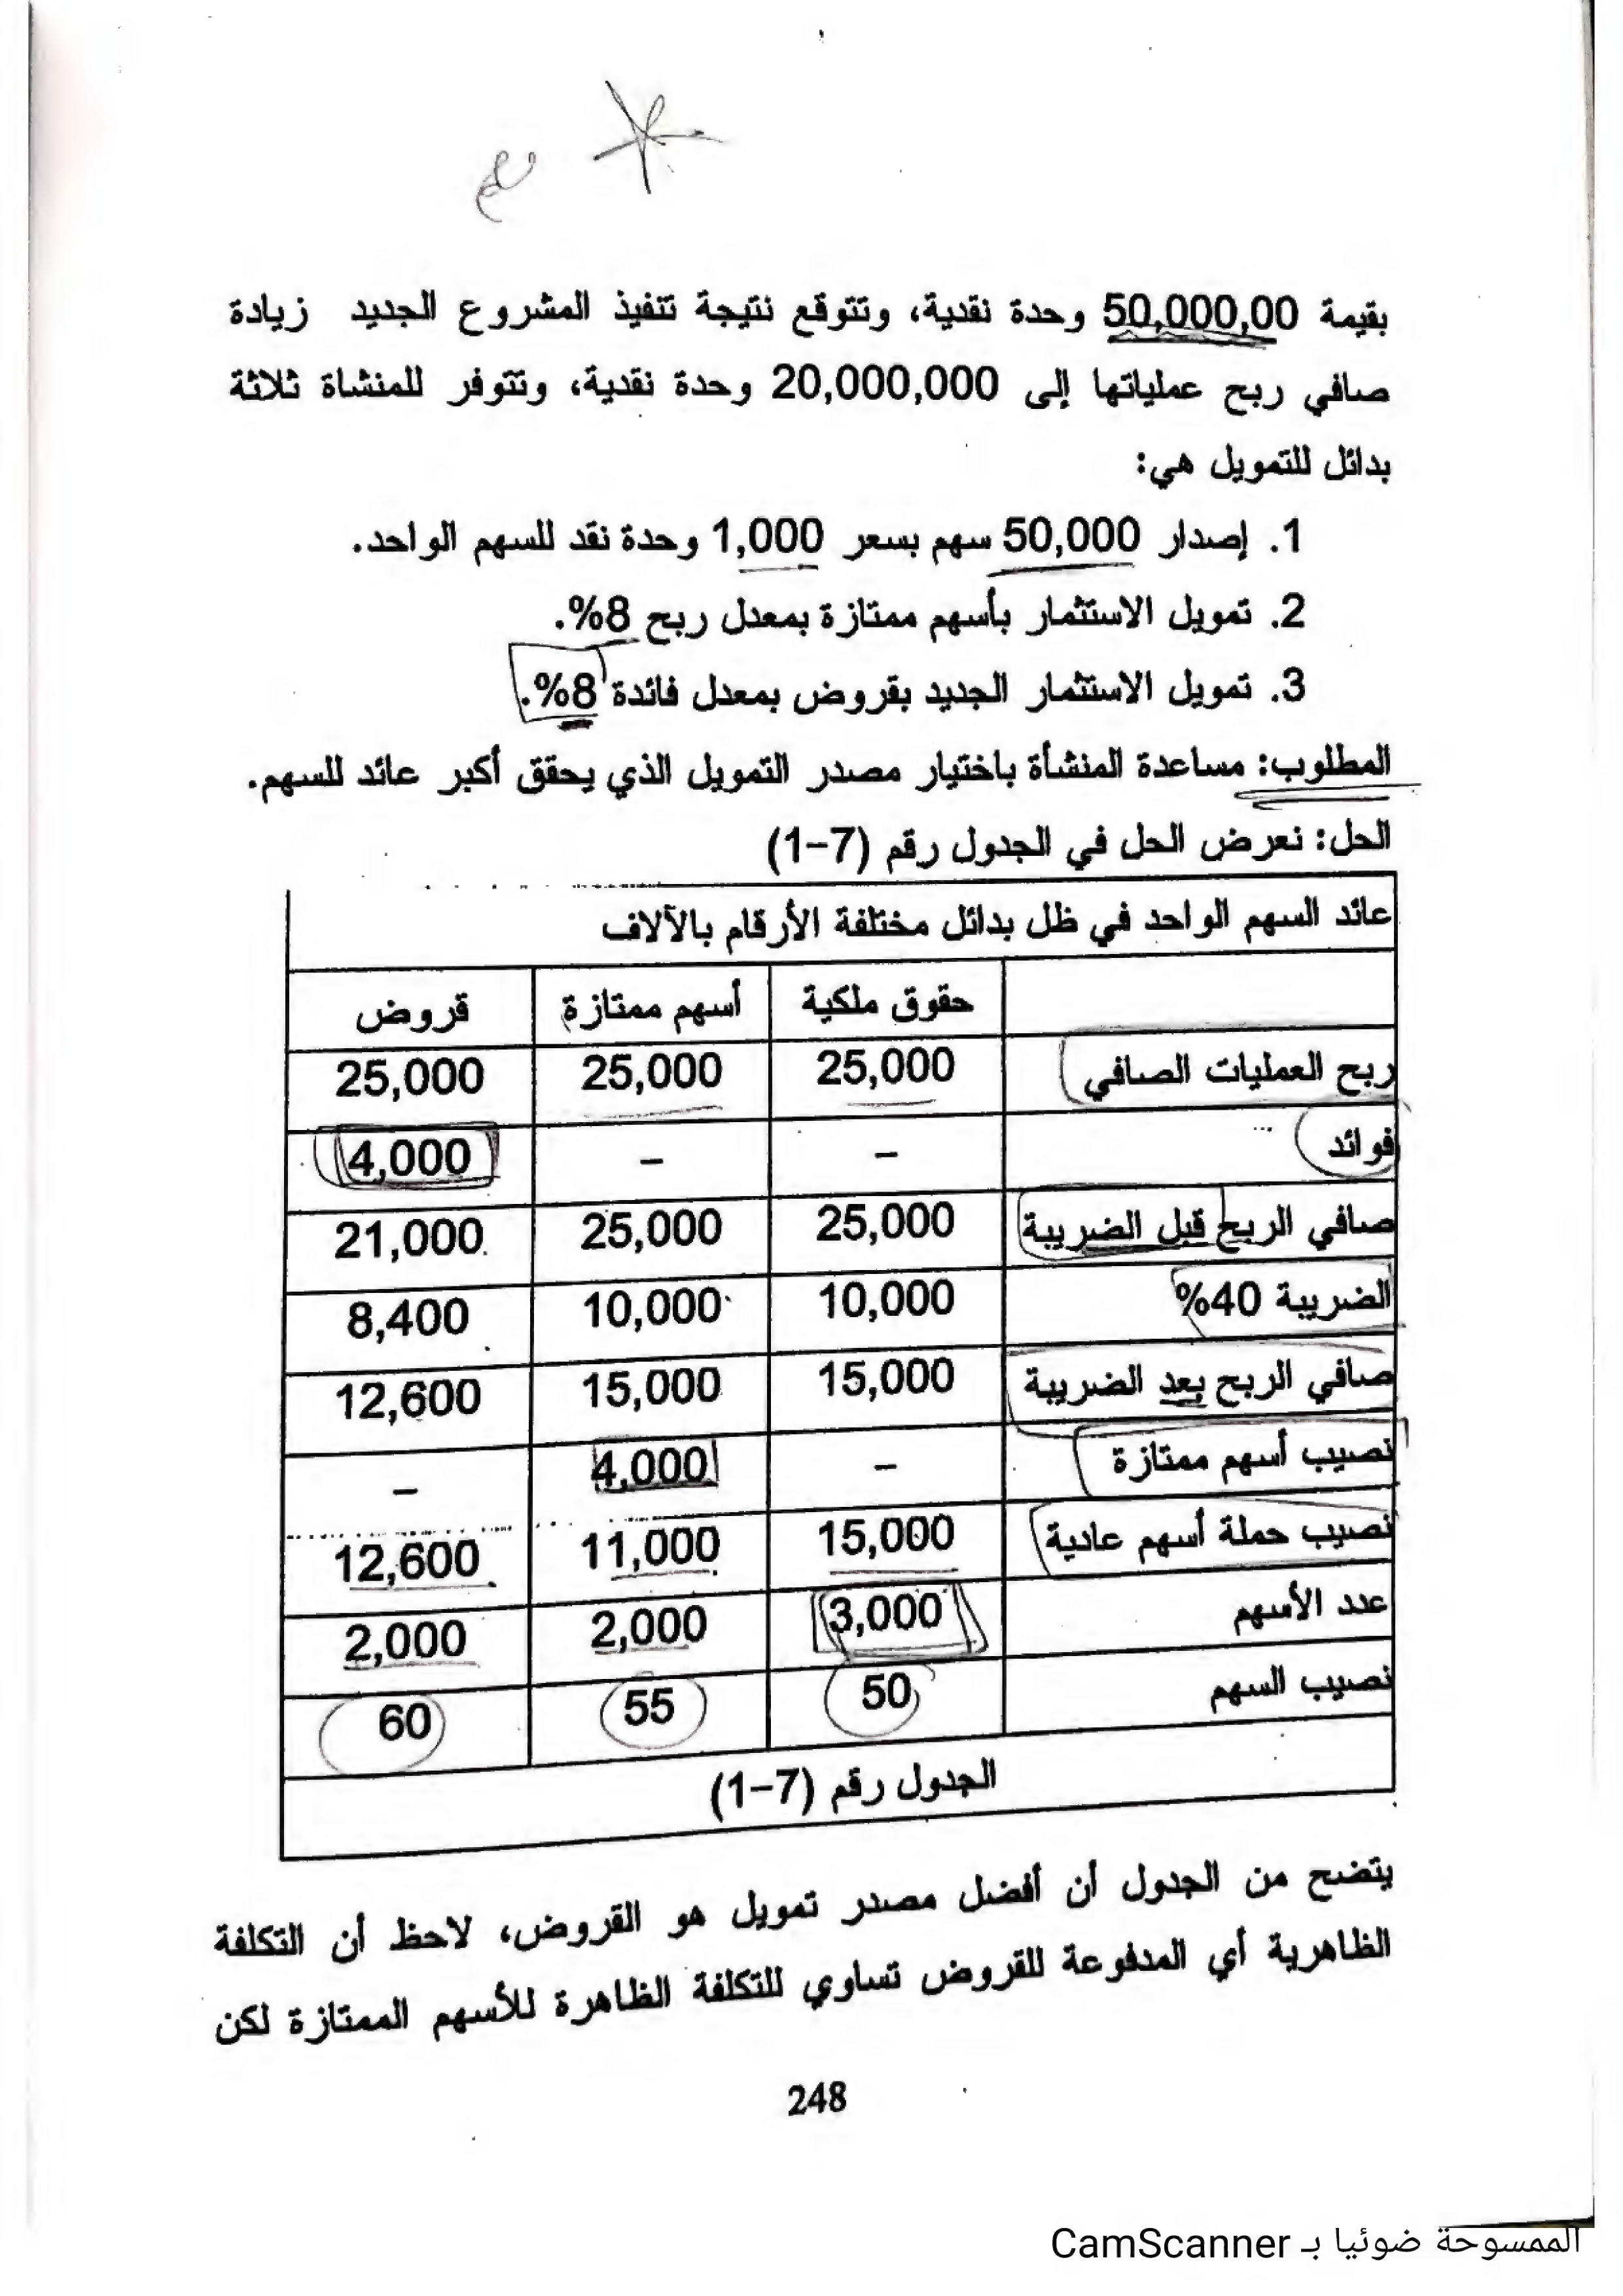 بقيمة 50,000,00 وحدة نقدية، وتتوقع نتيجة تنفيذ المشروع الجديد زيادة
صافي ربح عملياتها إلى 20,000,000 وحدة نقدية، وتتوفر للمنشاة ثلاثة
بدائل للتمويل هي:
1. إصدار 50,000 سهم بسعر 1,000 وحدة نقد للسهم الواحد.
2. تمويل الاستثمار بأسهم ممتازة بمعدل ربح 8%.
3. تمويل الاستثمار الجديد بقروض بمعدل فائدة 8%.
المطلوب: مساعدة المنشأة باختيار مصدر التمويل الذي يحقق أكبر عائد للسهم.
الحل: نعرض الحل في الجدول رقم (7-1)
عائد السهم الواحد في ظل بدائل مختلفة الأرقام بالآلاف
حقوق ملكية أسهم ممتازة قروض
ربح العمليات الصافي 25,000 25,000 25,000
فوائد - - 4,000
صافي الربح قبل الضريبة 25,000 25,000 21,000
الضريبة 40% 10,000 10,000 8,400
صافي الربح بعد الضريبة 15,000 15,000 12,600
نصيب أسهم ممتازة - 4,000 -
نصيب حملة أسهم عادية 15,000 11,000 12,600
عدد الأسهم 3,000 2,000 2,000
نصيب السهم 50 55 60
الجدول رقم (7-1)
يتضح من الجدول أن أفضل مصدر تمويل هو القروض، لاحظ أن التكلفة
الظاهرية أي المدفوعة للقروض تساوي للتكلفة الظاهرة للأسهم الممتازة لكن
248
الممسوحة ضوئيا بـ CamScanner